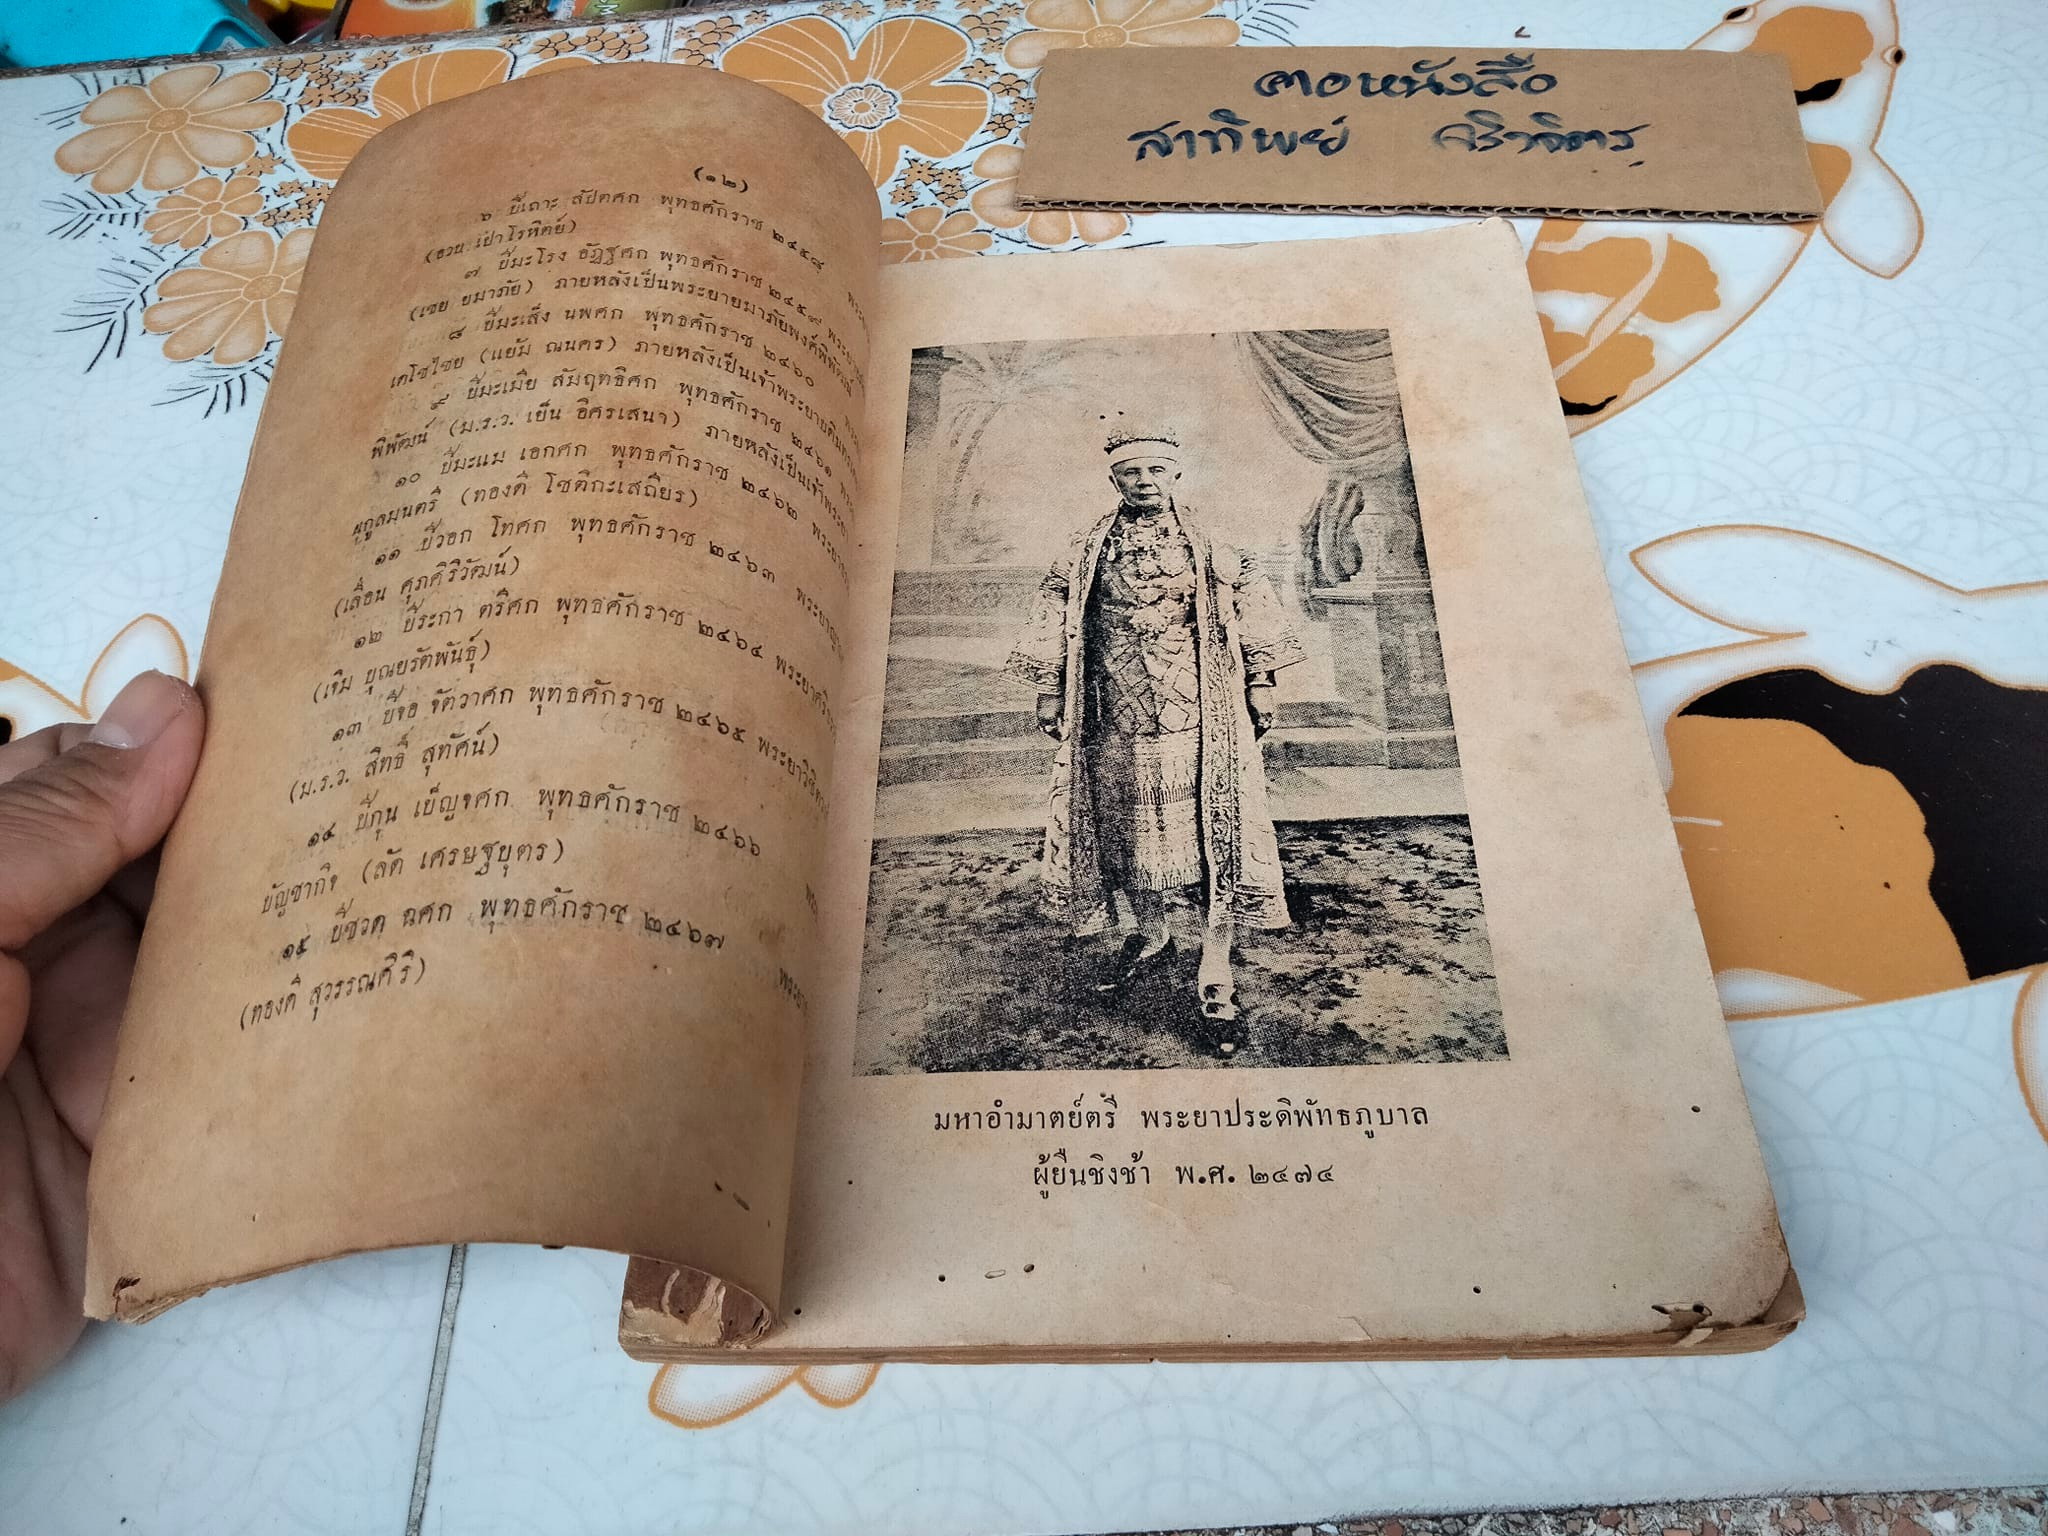 คอหนังสือ
สาทิพย์
(๑๒)
๖ ปีเถาะ สัปตศก พุทธศักราช ๒๔๕๘
(อวบ เปาโรหิตย์)
๗ ปีมะโรง อัฏฐศก พุทธศักราช ๒๔๕๙ พระยา
(เชย ยมาภัย) ภายหลังเป็นพระยายมาภัยพงศ์พิพัฒน์
๘ ปีมะเส็ง นพศก พุทธศักราช ๒๔๖๐
เดโชไชย (แย้ม ณนคร) ภายหลังเป็นเจ้าพระยาบดินทร
๙ ปีมะเมีย สัมฤทธิศก พุทธศักราช ๒๔๖๑
พิพัฒน์ (ม.ร.ว. เย็น อิศรเสนา) ภายหลังเป็นเจ้าพระยา
๑๐ ปีมะแม เอกศก พุทธศักราช ๒๔๖๒ พระยา
ผกูลมนตรี (ทองดี โชติกะเสถียร)
๑๑ ปีวอก โทศก พุทธศักราช ๒๔๖๓
(เลื่อน ศุภศิริวัฒน์)
๑๒ ปีระกา ตรีศก พุทธศักราช ๒๔๖๔ พระยาศรี
(เจิม บุณยรัตพันธุ์)
๑๓ ปีจอ จัตวาศก พุทธศักราช ๒๔๖๕ พระยาวิชิตวง
(ม.ร.ว. สิทธิ์ สุทัศน์)
๑๔ ปีกุน เบ็ญจศก พุทธศักราช ๒๔๖๖
บัญชากิจ (ลัด เศรษฐบุตร)
๑๕ ปีชวด ฉศก พุทธศักราช ๒๔๖๗
(ทองดี สุวรรณศิริ)
มหาอำมาตย์ตรี พระยาประดิพัทธภูบาล
ผู้ยืนชิงช้า พ.ศ. ๒๔๗๔